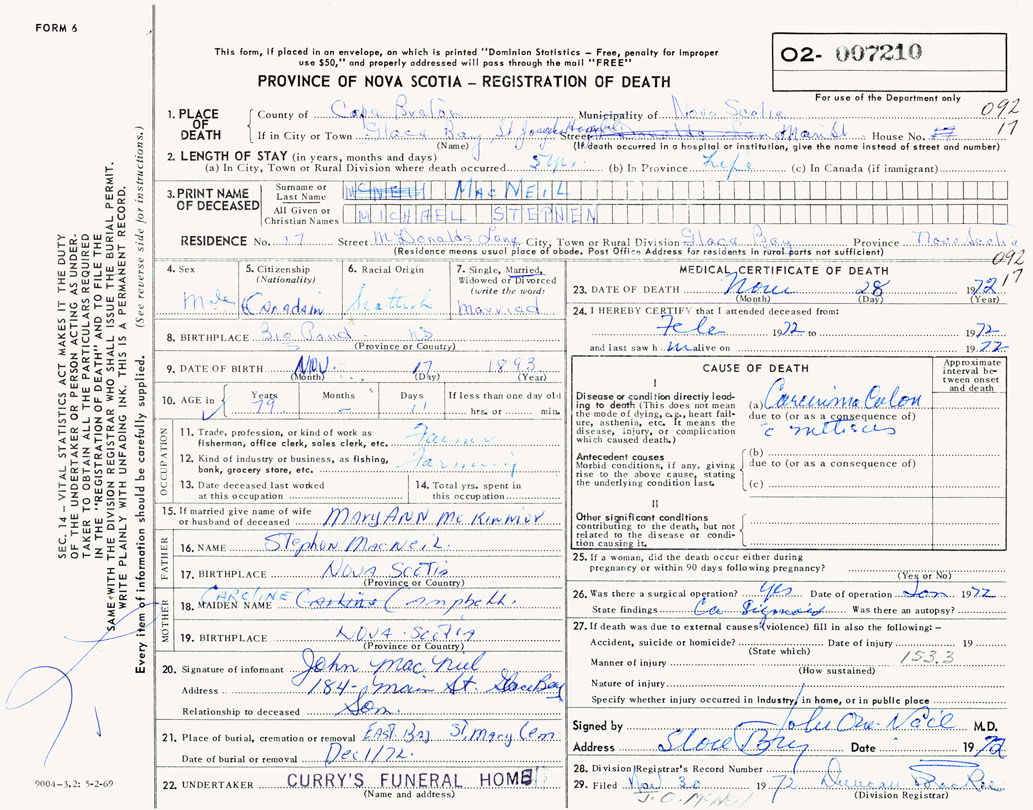 FORM 6
This form, if placed in an envelope, on which is printed "Dominion Statistics – Free, penalty for improper
use $50," and properly addressed will pass through the mail "FREE"
PROVINCE OF NOVA SCOTIA – REGISTRATION OF DEATH
O2- 007210
For use of the Department only
092
17
1. PLACE OF DEATH
County of Cape Breton Municipality of Nova Scotia
If in City or Town Glace Bay, St. Joseph Street Main St House No.
(Name) (If death occurred in a hospital or institution, give the name instead of street and number)
2. LENGTH OF STAY (in years, months and days)
(a) In City, Town or Rural Division where death occurred 5 yrs. (b) In Province Life (c) In Canada (if immigrant)
3. PRINT NAME OF DECEASED
Surname or Last Name MACNEIL
All Given or Christian Names MICHAEL STEPHEN
RESIDENCE No. 17 Street McDonalds Lane City, Town or Rural Division Glace Bay Province Nova Scotia
(Residence means usual place of abode. Post Office Address for residents in rural parts not sufficient)
092
17
4. Sex
Male
5. Citizenship
(Nationality)
Canadian
6. Racial Origin
Scottish
7. Single, Married, Widowed or Divorced
(write the word)
Married
8. BIRTHPLACE Big Pond NS
(Province or Country)
9. DATE OF BIRTH NOV. 17 1893
(Month) (Day) (Year)
10. AGE in Years Months Days If less than one day old
79 – 11 hrs. or min.
OCCUPATION
11. Trade, profession, or kind of work as
fisherman, office clerk, sales clerk, etc. Farmer
12. Kind of industry or business, as fishing,
bank, grocery store, etc. Farming
13. Date deceased last worked
at this occupation
14. Total yrs. spent in
this occupation
15. If married give name of wife
or husband of deceased Mary Ann McKinnion
FATHER
16. NAME Stephen MacNeil.
17. BIRTHPLACE NOVA SCOTIA
(Province or Country)
MOTHER
CAROLINE
18. MAIDEN NAME Campbell.
19. BIRTHPLACE NOVA-SCOTIA
(Province or Country)
20. Signature of informant John MacNeil
Address 184- Main St. Glace Bay
Relationship to deceased Son.
21. Place of burial, cremation or removal EAST BAY St. Mary Cem
Date of burial or removal Dec 1/72.
22. UNDERTAKER CURRY'S FUNERAL HOME
(Name and address)
MEDICAL CERTIFICATE OF DEATH
23. DATE OF DEATH Nov 28 1972
(Month) (Day) (Year)
24. I HEREBY CERTIFY that I attended deceased from:
Feb 1972 to 1972
and last saw him alive on 1972
CAUSE OF DEATH
Approximate interval between onset and death
I
Disease or condition directly leading to death (This does not mean the mode of dying, e.g., heart failure, asthenia, etc. It means the disease, injury, or complication which caused death.)
(a) Carcinoma Colon
due to (or as a consequence of)
Antecedent causes
Morbid conditions, if any, giving rise to the above cause, stating the underlying condition last.
(b)
due to (or as a consequence of)
(c)
II
Other significant conditions
contributing to the death, but not related to the disease or condition causing it.
25. If a woman, did the death occur either during
pregnancy or within 90 days following pregnancy?
(Yes or No)
26. Was there a surgical operation? Yes Date of operation Jan 1972
State findings Ca Sigmoid Was there an autopsy?
27. If death was due to external causes (violence) fill in also the following: –
Accident, suicide or homicide? Date of injury 19
(State which)
153.3
Manner of injury
(How sustained)
Nature of injury
Specify whether injury occurred in industry, in home, or in public place
Signed by M.D.
Address Glace Bay Date 1972
28. Division Registrar's Record Number
29. Filed Nov. 30 1972 Duncan MacRae
J. O. McNeil (Division Registrar)
SEC. 14 – VITAL STATISTICS ACT MAKES IT THE DUTY
OF THE UNDERTAKER OR PERSON ACTING AS UNDER-
TAKER TO OBTAIN ALL THE PARTICULARS REQUIRED
IN THE "REGISTRATION OF DEATH" AND FILE THE
SAME WITH THE DIVISION REGISTRAR WHO SHALL ISSUE THE BURIAL PERMIT.
WRITE PLAINLY WITH UNFADING INK. THIS IS A PERMANENT RECORD.
Every item of information should be carefully supplied. (See reverse side for instructions.)
9004-3.2: 5-2-69